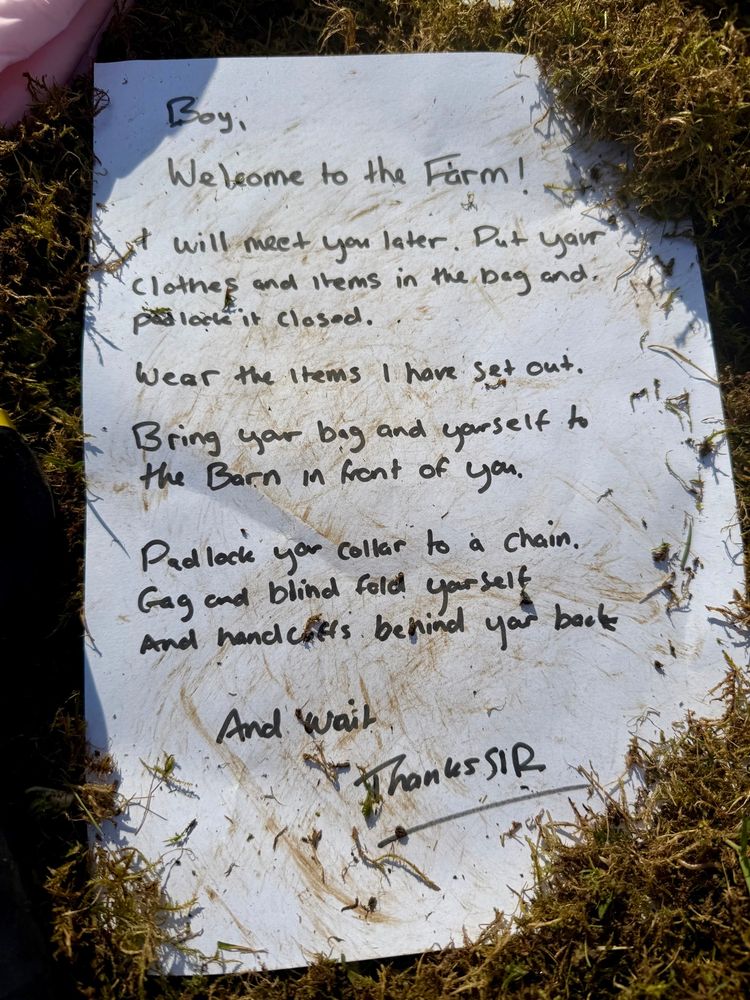 Boy,
Welcome to the Farm!
I will meet you later. Put your
clothes and items in the bag and.
padlock it closed.
Wear the items I have set out.
Bring your bag and yourself to
the Barn in front of you.
Padlock your collar to a chain.
Gag and blind fold yourself
And handcuffs behind your back
And wait
Thanks SIR